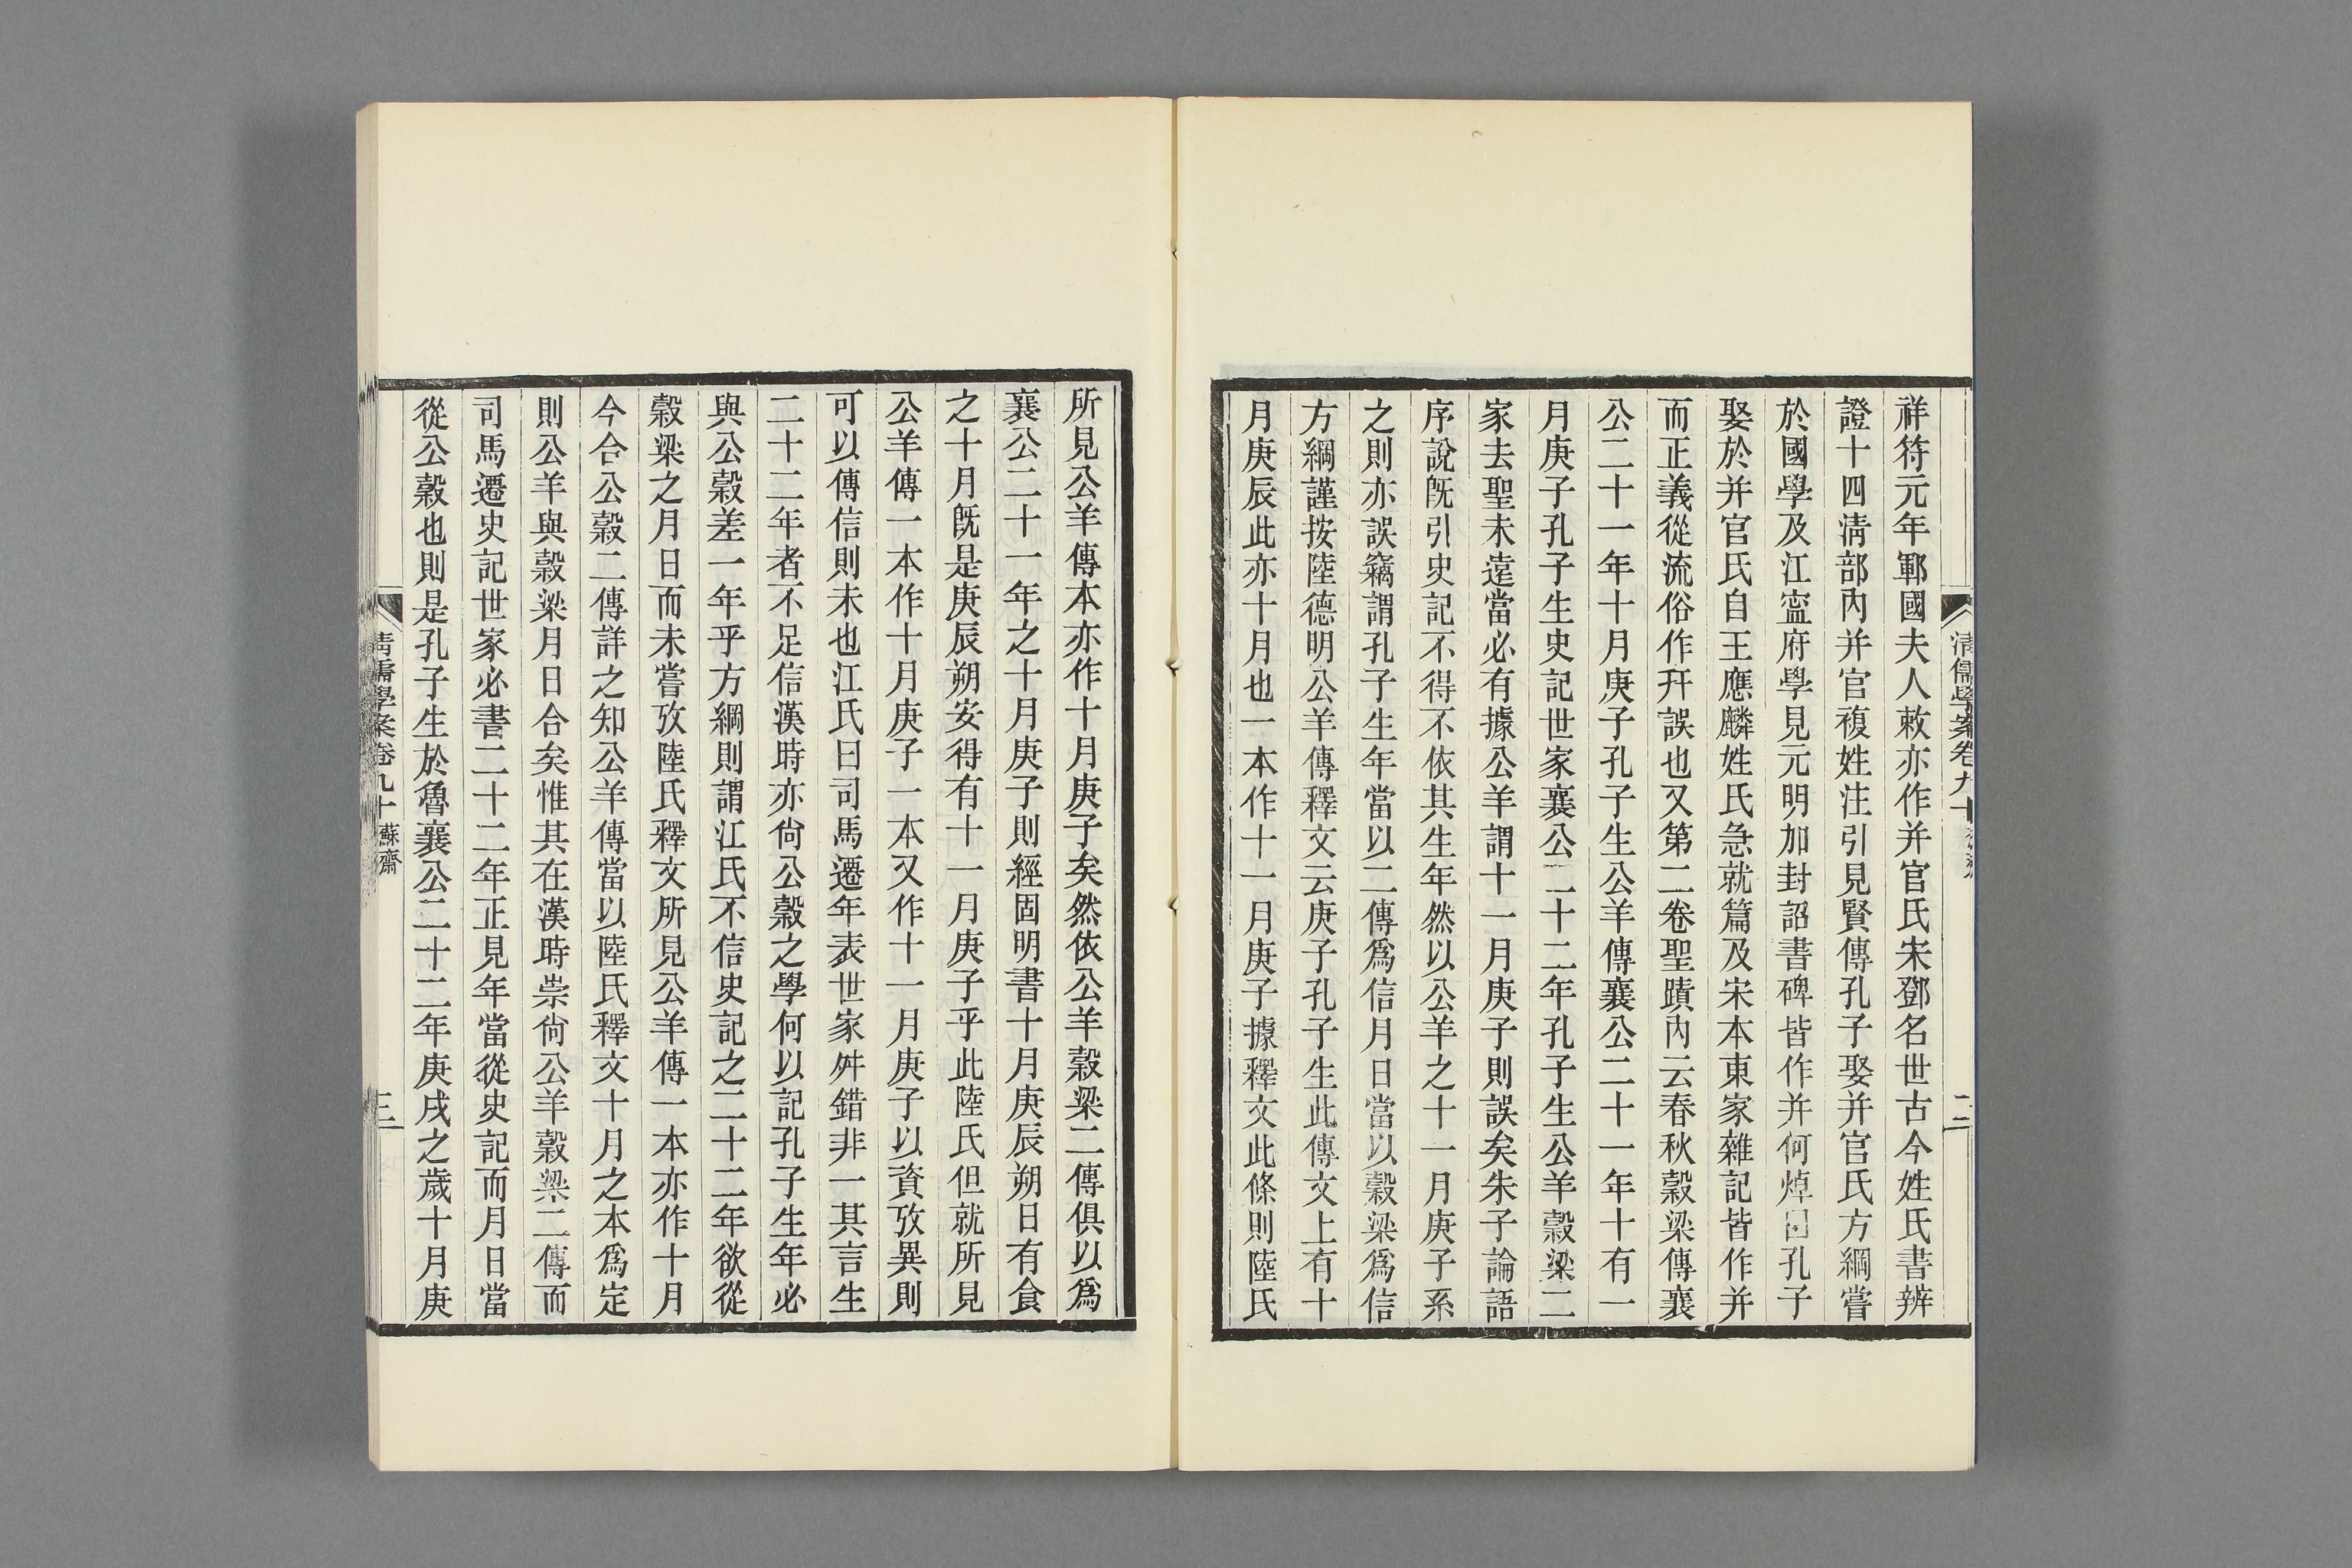 清儒學案卷九十
二
祥符元年鄆國夫人敕亦作并官氏宋鄧名世古今姓氏書辨
證十四淸部內并官複姓注引見賢傳孔子娶并官氏方綱嘗
於國學及江寍府學見元明加封詔書碑皆作并何焯曰孔子
娶於并官氏自王應麟姓氏急就篇及宋本東家雜記皆作并
而正義從流俗作幵誤也又第二卷聖蹟內云春秋穀梁傳襄
公二十一年十月庚子孔子生公羊傳襄公二十一年十有一
月庚子孔子生史記世家襄公二十二年孔子生公羊穀梁二
家去聖未遠當必有據公羊謂十一月庚子則誤矣朱子論語
序說旣引史記不得不依其生年然以公羊之十一月庚子系
之則亦誤竊謂孔子生年當以二傳爲信月日當以穀梁爲信
方綱謹按陸德明公羊傳釋文云庚子孔子生此傳文上有十
月庚辰此亦十月也一本作十一月庚子據釋文此條則陸氏
所見公羊傳本亦作十月庚子矣然依公羊穀梁二傳俱以爲
襄公二十一年之十月庚子則經固明書十月庚辰朔日有食
之十月旣是庚辰朔安得有十一月庚子乎此陸氏但就所見
公羊傳一本作十月庚子一本又作十一月庚子以資攷異則
可以傳信則未也江氏曰司馬遷年表世家舛錯非一其言生
二十二年者不足信漢時亦尙公穀之學何以記孔子生年必
與公穀差一年乎方綱則謂江氏不信史記之二十二年欲從
穀梁之月日而未嘗攷陸氏釋文所見公羊傳一本亦作十月
今合公穀二傳詳之知公羊傳當以陸氏釋文十月之本爲定
則公羊與穀梁月日合矣惟其在漢時崇尙公羊穀梁二傳而
司馬遷史記世家必書二十二年正見年當從史記而月日當
從公穀也則是孔子生於魯襄公二十二年庚戌之歲十月庚
清儒學案卷九十 蘇齋
三